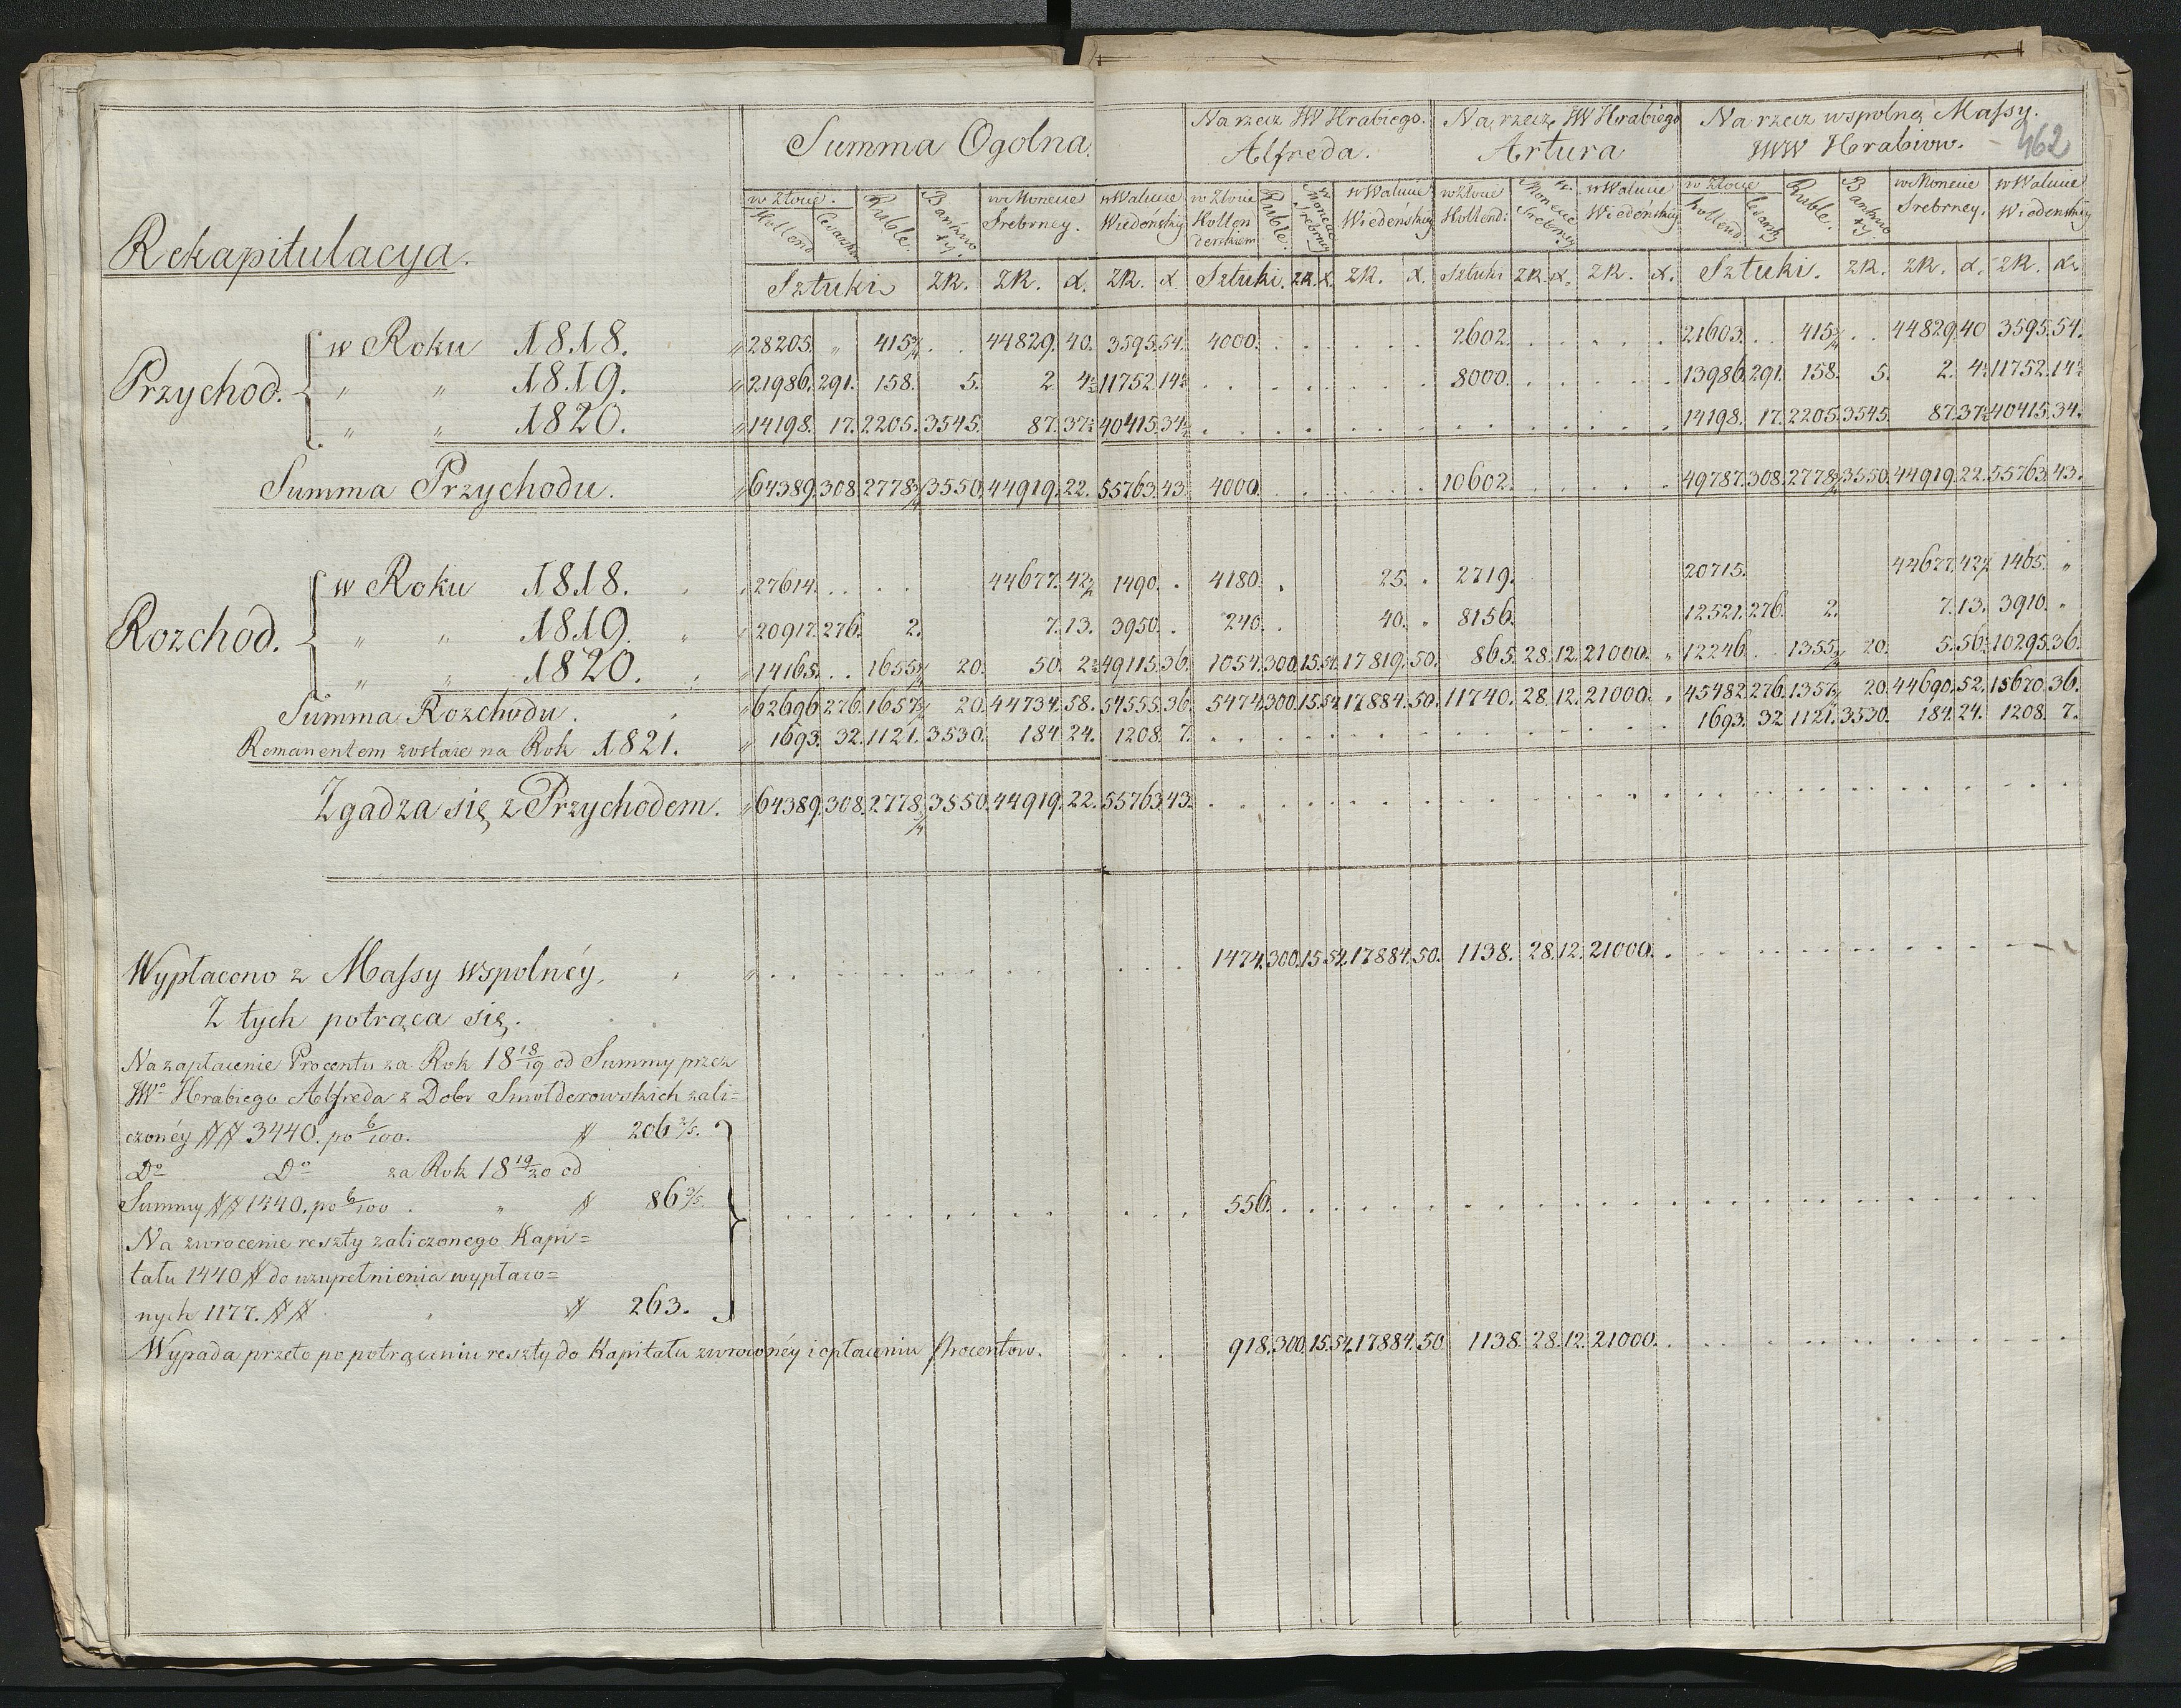 462
Rekapitulacya.
Summa Ogolna.
Na rzecz JW Hrabiego Alfreda.
Na rzecz JW Hrabiego Artura
Na rzecz wspolney Massy. JWW Hrabiow.
w Złocie. Hollend Cesarskie Ruble. Bankno ty. w Monecie Srebrney. w Walucie Wiedeńskiey w Złocie Hollen derskiem Ruble. w Monecie Srebrney w Walucie Wiedeńskiey w Złocie Hollend: w Monecie Srebrney w Walucie Wiedeńskiey w Złocie Hollend Cesarsky Ruble. Bankno ty. w Monecie Srebrney. w Walucie Wiedenskiey
Sztuki ZR. ZR. x. ZR. x. Sztuki. ZR. x. ZR. x. Sztuki ZR. x. ZR. x. Sztuki. ZR. ZR. x. ZR. x.
Przychod. w Roku 1818. 28205. " 415¾ . . 44829. 40. 3595. 54. 4000. 2602. 21603. . . 415¾ . . 44829. 40 3595. 54.
" " 1819. 21986. 291. 158. 5. 2. 4½ 11752. 14½ 8000. 13986. 291. 158. 5. 2. 4½ 11752. 14½
" " 1820. 14198. 17. 2205. 3545. 87. 37½ 40415. 34½ 14198. 17. 2205. 3545. 87. 37½ 40415. 34.
Summa Przychodu. 64389. 308. 2778¾ 3550. 44919. 22. 55763. 43 4000. 10602. 49787. 308. 2778¾ 3550. 44919. 22. 55763. 43.
Rozchod. w Roku 1818. 27614. 44677. 42½ 1490. . 4180. 25. . 2719. 20715. 44677. 42½ 1465. "
" " 1819. 20917. 276. 2. 7. 13. 3950. . 240. 40. . 8156. 12521. 276. 2. 7. 13. 3910. "
" " 1820. 14165. . . 1655¾ 20. 50. 2½ 49115. 36. 1054. 300. 15. 54. 17819. 50. 865. 28. 12. 21000. " 12246. . . 1355¾ 20. 5. 56½ 10295. 36.
Summa Rozchodu. 62696. 276. 1657¾ 20. 44734. 58. 54555. 36. 5474. 300. 15. 54. 17884. 50. 11740. 28. 12. 21000. . 45482. 276. 1357¾ 20. 44690. 52. 15670. 36.
Remanentem zostaie na Rok 1821. 1693. 32. 1121. 3530. 184. 24. 1208. 7. 1693. 32. 1121. 3530. 184. 24. 1208. 7.
Zgadza się z Przychodem. 64389. 308. 2778¾ 3550. 44919. 22. 55763. 43.
Wypłacono z Massy wspolnéy, 1474. 300. 15. 54. 17884. 50. 1138. 28. 12. 21000.
Z tych potrąca się.
Na zapłacenie Procentu za Rok 18 18/19 od Summy przez
JWo Hrabiego Alfreda z Dobr Smolderowskich zali=
czonéy ## 3440. po 6/100. # 206 2/5.
Do Do za Rok 18 19/20 od
Summy ## 1440. po 6/100 . " # 86 2/5. 556.
Na zwrocenie reszty zaliczonego Kapi=
tału 1440 # do uzupełnienia wypłaco=
nych 1177. ## # 263.
Wypada przeto po potrąceniu reszty do Kapitału zwroconéy i opłaceniu Procentow. 918. 300. 15. 54. 17884. 50. 1138. 28. 12. 21000.